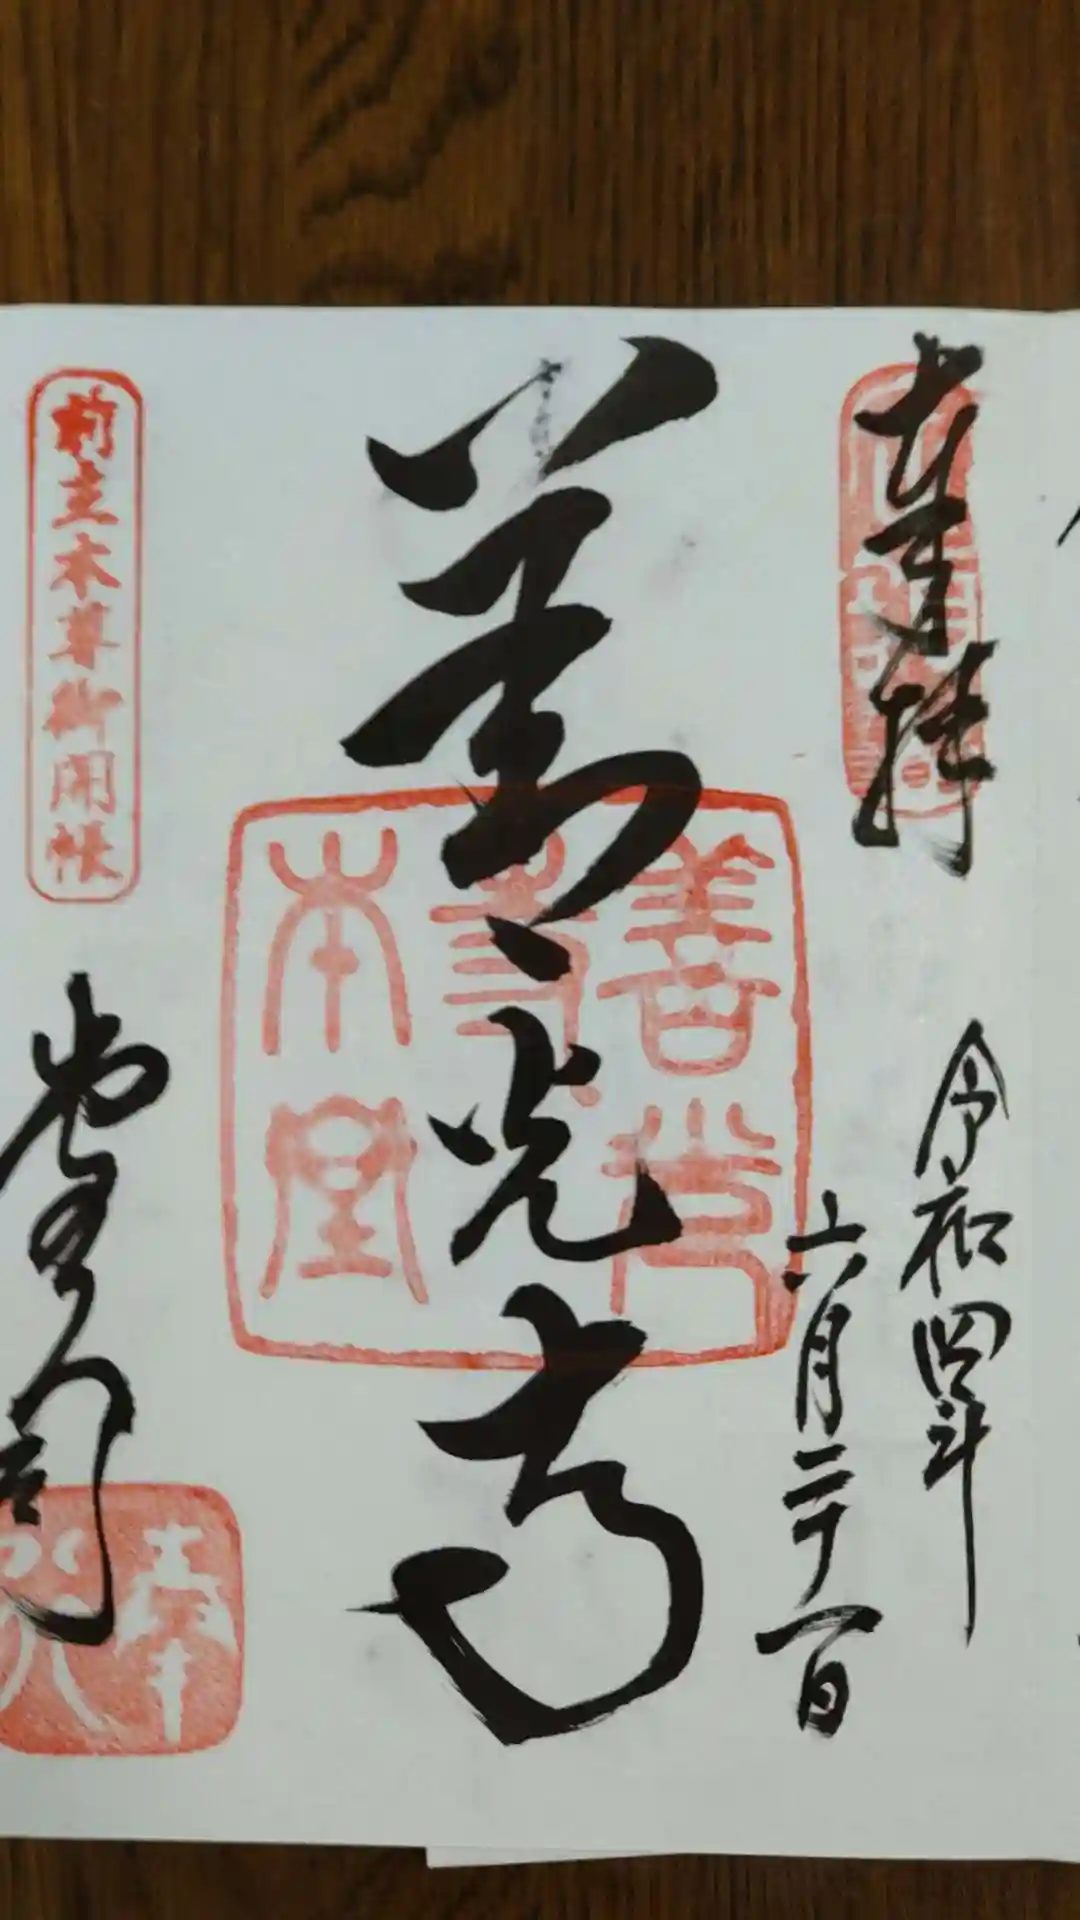 奉拝
令和四年
六月二十一日
善光寺
善光
寺
本堂
前立本尊御開帳
堂司